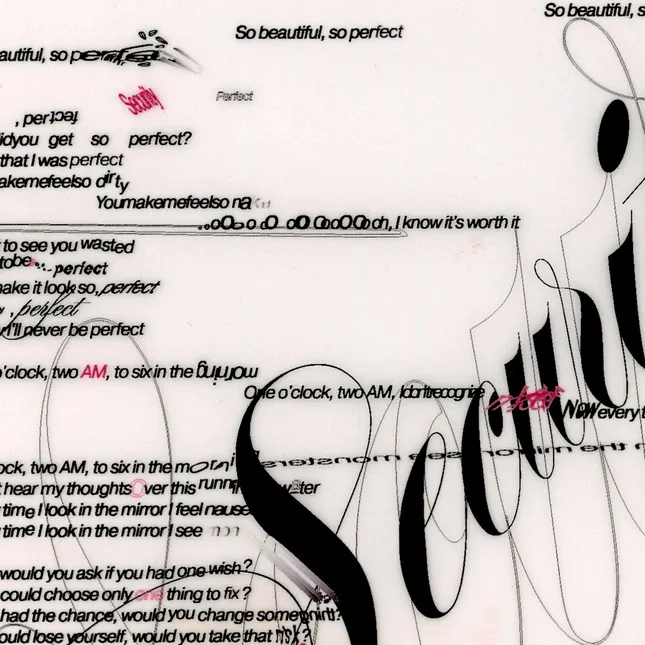 So beautiful, s
So beautiful, so perfect
autiful, so perfect
Security
Perfect
, perfect
idyou get so perfect?
that I was perfect
akemefeelso dirty
Youmakemefeelso na
oh, I know it's worth it
to see you wasted
tobe perfect
ake it look so, perfect
, perfect
I'll never be perfect
o'clock, two AM, to six in the morning
One o'clock, two AM, Idontrecognize
Now every t
ock, two AM, to six in the morning
see monsters
n the mirror
t hear my thoughts Over this running water
time I look in the mirror I feel nause
time I look in the mirror I see mon
would you ask if you had one wish?
could choose only one thing to fix?
had the chance, would you change something?
ould lose yourself, would you take that risk?
Securi